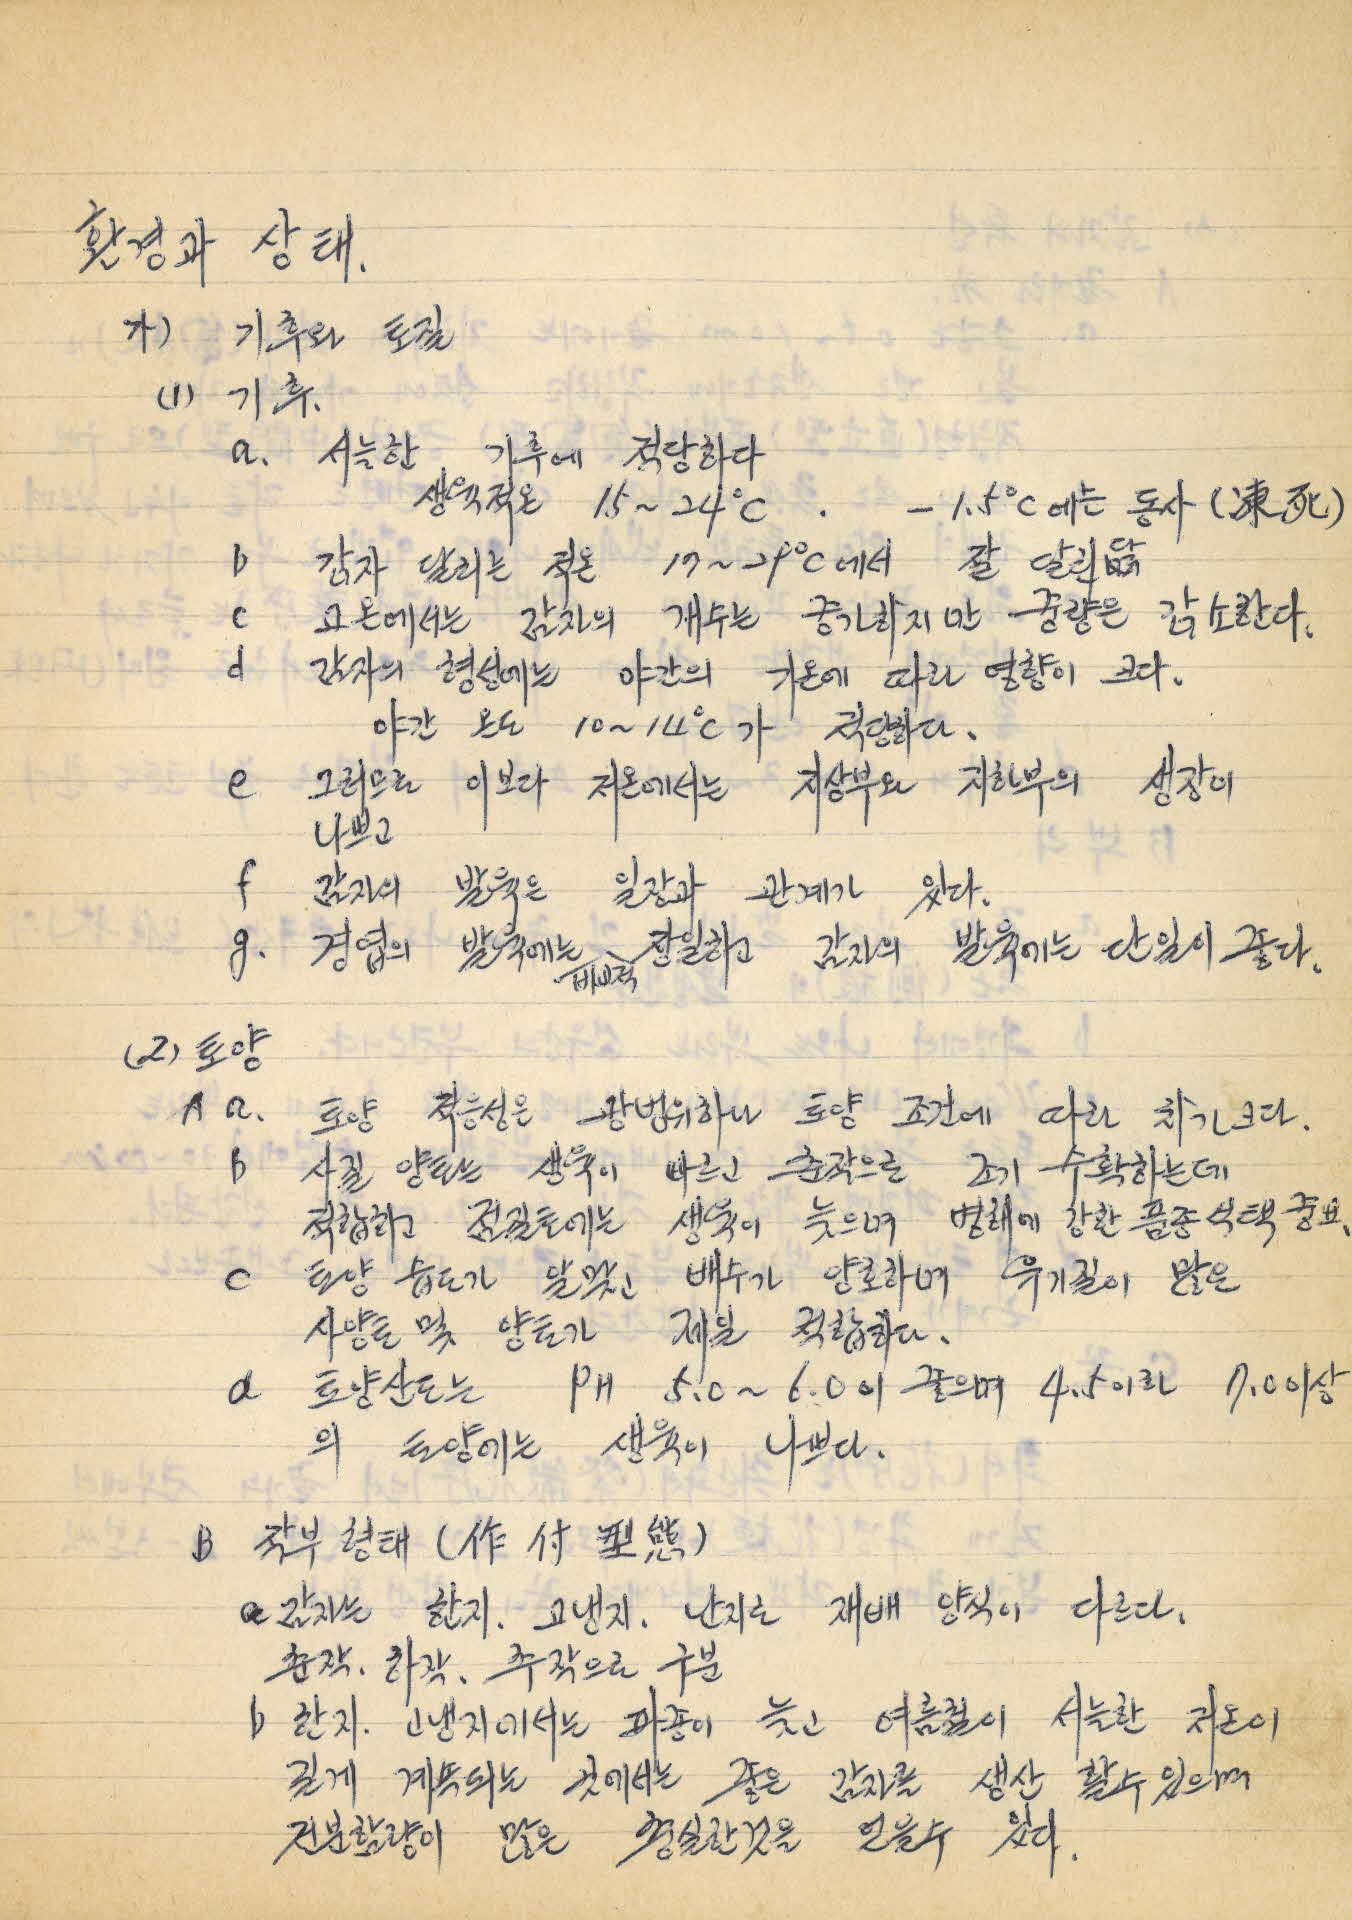 환경과 상태.
가) 기후와 토질
(1) 기후.
a. 서늘한 기후에 적당하다
생육적온 15~24°C . -1.5°C에는 동사 (凍死)
b 감자 달리는 적온 17~29°C에서 잘 달린
c 고온에서는 감자의 개수는 증가하지만 중량은 감소한다.
d 감자의 형성에는 야간의 기온에 따라 영향이 크다.
야간 온도 10~14°C가 적당하다.
e 그러므로 이보다 저온에서는 지상부와 지하부의 생장이
나쁘고
f 감자의 발육은 일장과 관계가 있다.
g. 경엽의 발육에는 장일하고 감자의 발육에는 단일이 좋다.
비교적
(2) 토양
A a. 토양 적응성은 광범위하나 토양 조건에 따라 차가 크다.
b 사질 양토는 생육이 빠르고 춘작으로 조기 수확하는데
적합하고 점질토에는 생육이 늦으며 병해에 강한 품종 선택 중요.
c 토양 습도가 알맞고 배수가 양호하며 유기질이 많은
사양토 및 양토가 제일 적합하다.
d 토양산도는 PH 5.0~6.0이 좋으며 4.5이하 7.0이상
의 토양에는 생육이 나쁘다.
B 작부형태 (作付型態)
a 감자는 한지. 고냉지. 난지로 재배 양식이 다르다.
춘작. 하작. 추작으로 구분
b 한지. 고냉지에서는 파종이 늦고 여름철이 서늘한 저온이
길게 계속되는 곳에서는 좋은 감자를 생산 할수 있으며
전분함량이 많은 충실한것을 얻을수 있다.